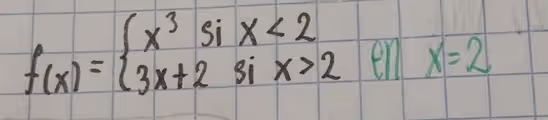 f(x) = { x³ si x < 2
3x+2 si x > 2 en x=2